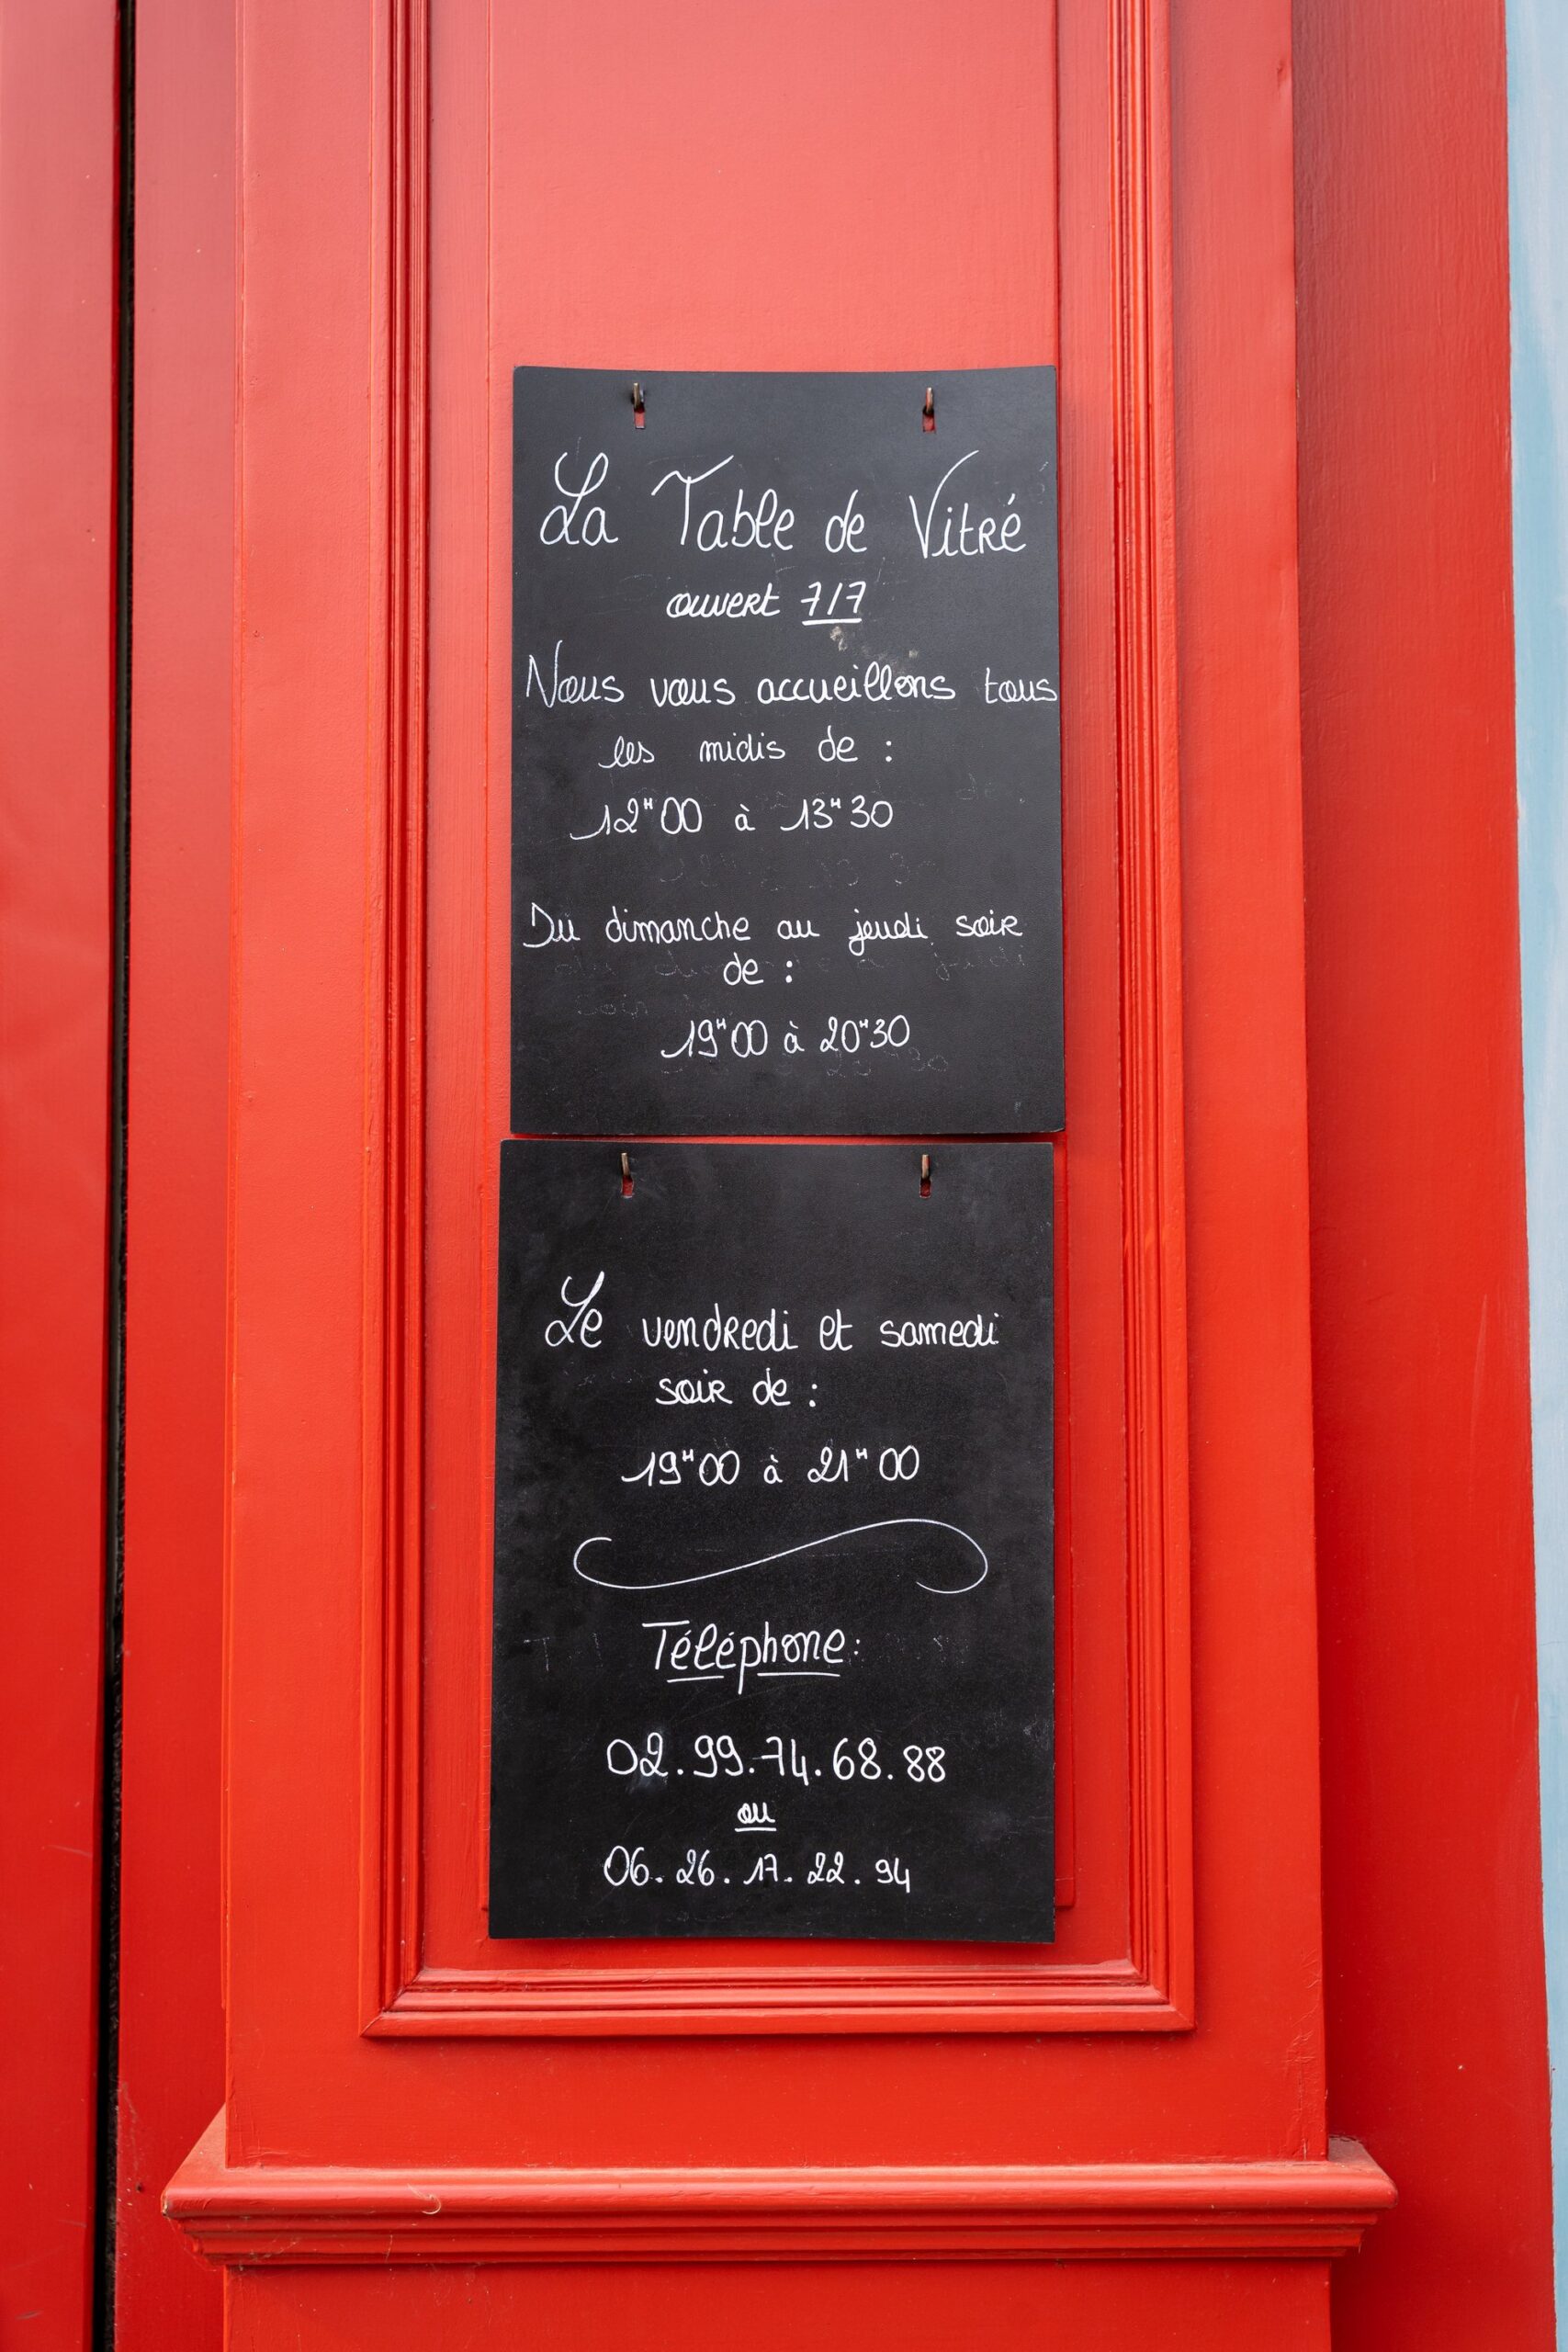 La Table de Vitré
ouvert 7/7
Nous vous accueillons tous
les midis de :
12H00 à 13H30
Du dimanche au jeudi soir
de :
19H00 à 20H30
Le vendredi et samedi
soir de :
19H00 à 21H00
Téléphone :
02.99.74.68.88
ou
06.26.17.22.94